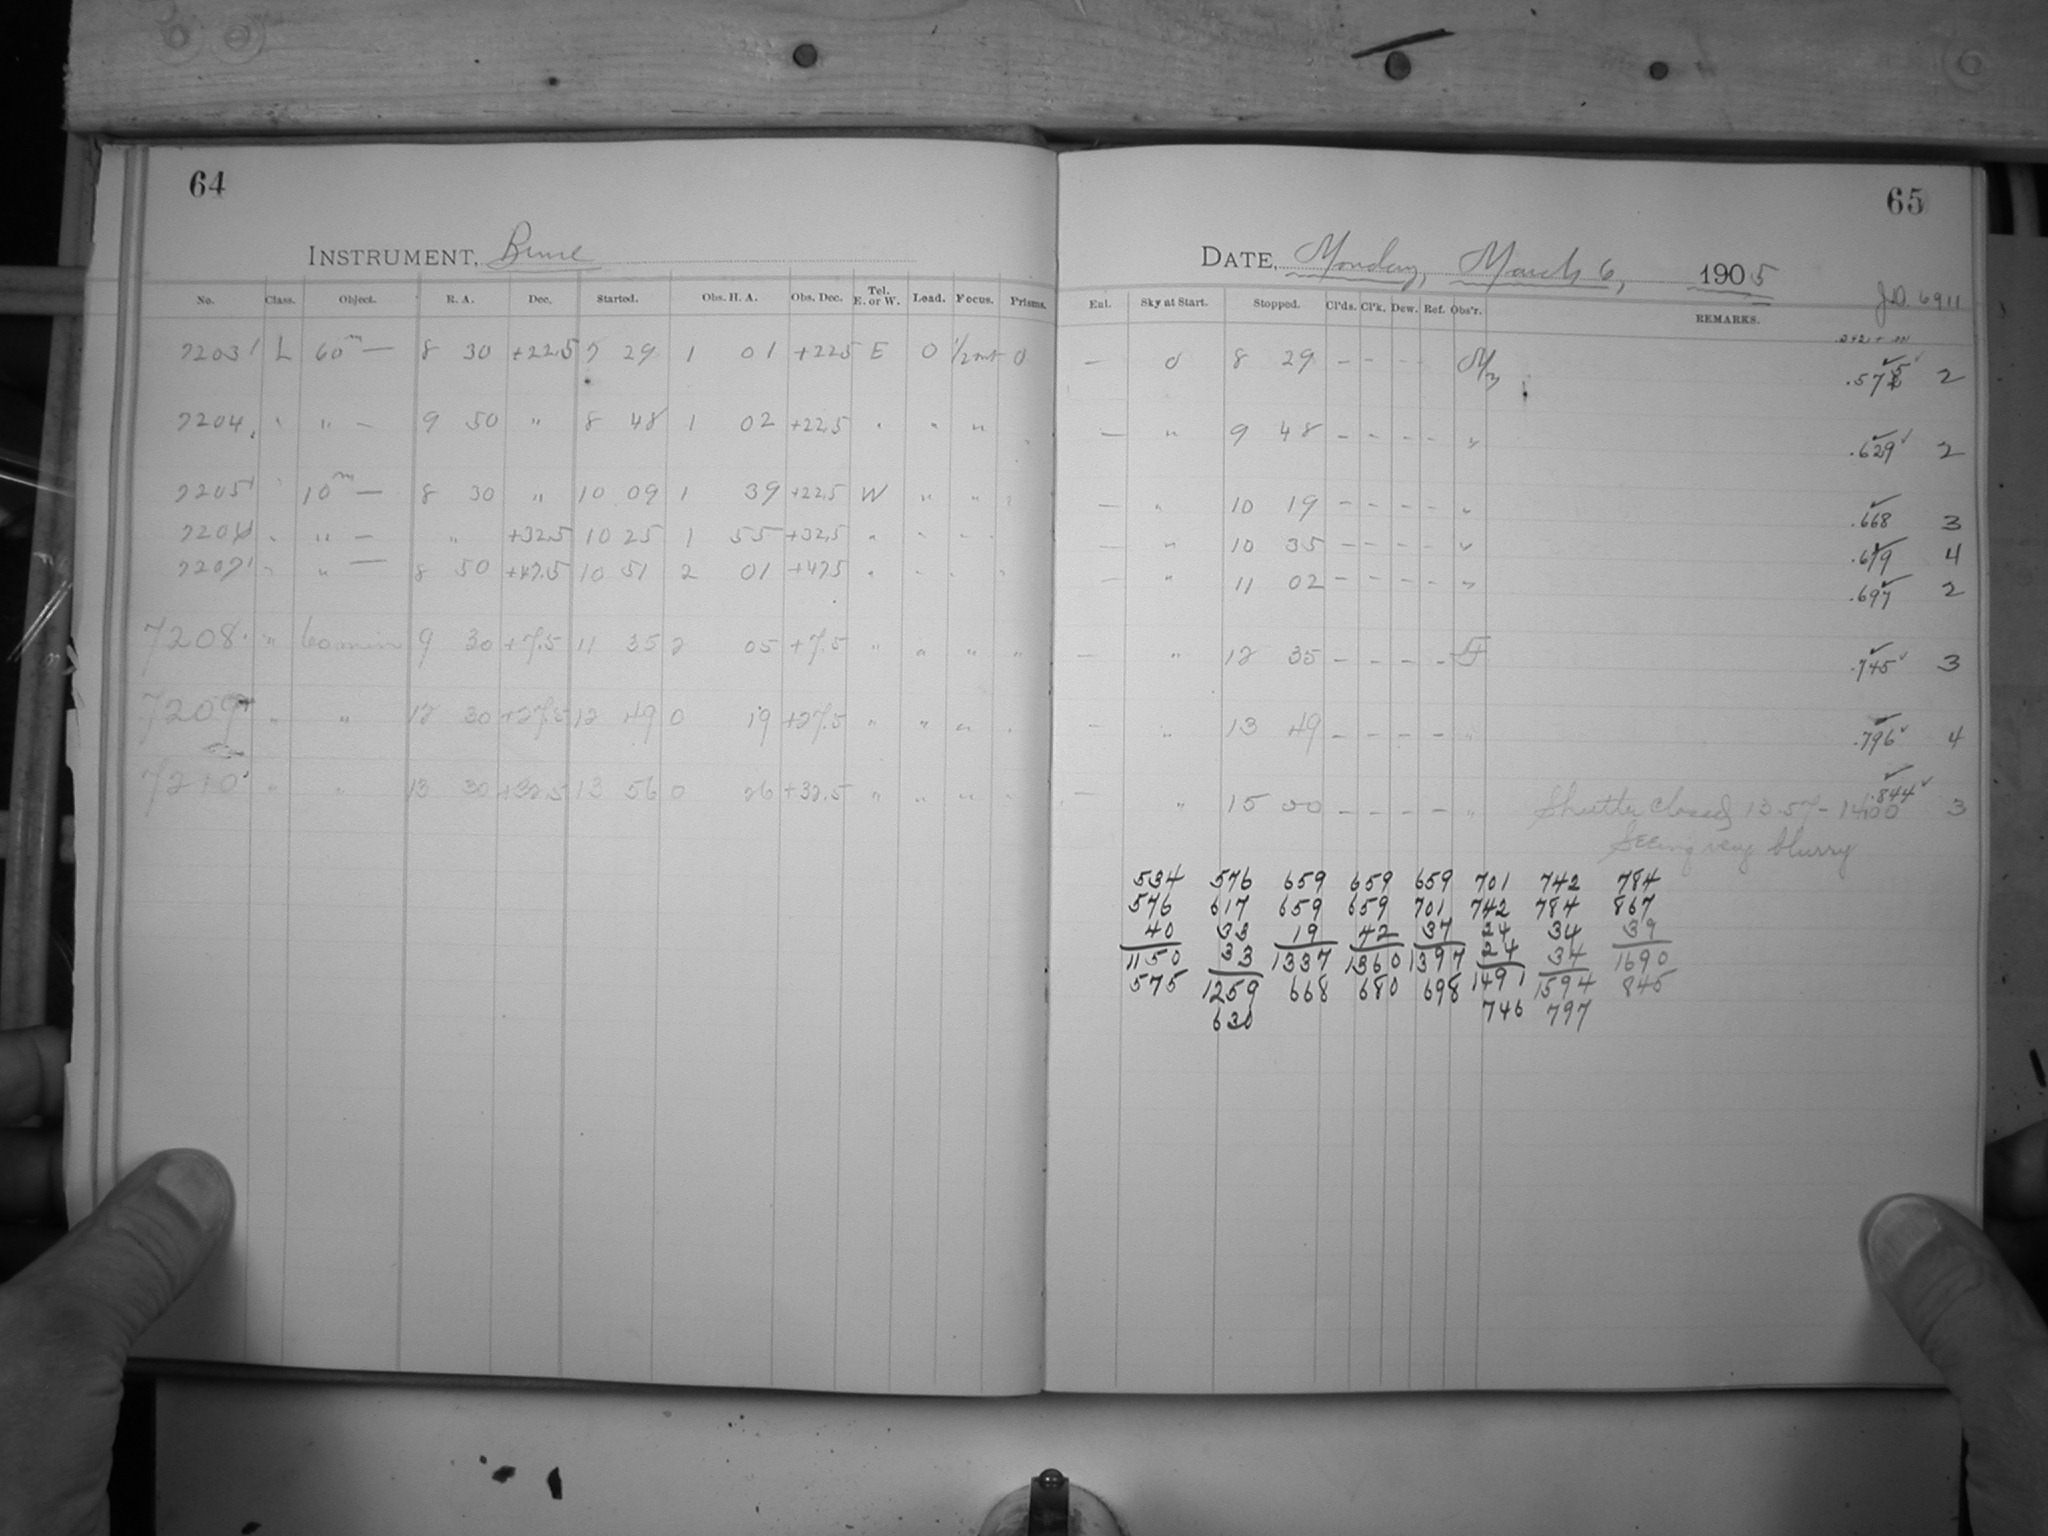 64
INSTRUMENT, Bruce
No. Class. Object. R. A. Dec. Started. Obs. H. A. Obs. Dec. Tel. E. or W. Load. Focus. Prisms.
7203 L 60m — 8 30 +22.5 7 29 1 01 +22.5 E 0 1/2 out 0
7204 " " — 9 50 " 8 48 1 02 +22.5 " " " "
7205 " 10m — 8 30 " 10 09 1 39 +22.5 W " " "
7206 " " — " +32.5 10 25 1 55 +32.5 " " " "
7207 " " — 8 50 +47.5 10 51 2 01 +47.5 " " " "
7208 " 60 min 9 30 +7.5 11 35 2 05 +7.5 " " " "
7209 " " 12 30 +27.5 12 49 0 19 +27.5 " " " "
7210 " " 13 30 +32.5 13 56 0 26 +32.5 " " " "
65
DATE, Monday, March 6, 1905
J.D. 6911
Enl. Sky at Start. Stopped. Cl'ds. Cl'k. Dew. Ref. Obs'r. REMARKS.
— 0 8 29 – – – – .575 2
— " 9 48 – – – – " .629 2
— " 10 19 – – – – " .668 3
— " 10 35 – – – – " .679 4
— " 11 02 – – – – " .697 2
— " 12 35 – – – – .745 3
— " 13 49 – – – – " .796 4
— " 15 00 – – – – " Shutter closed 13.57 – 14.00 .844 3
Seeing very blurry
534 576 659 659 659 701 742 784
576 617 659 659 701 742 784 867
40 33 19 42 37 24 34 39
1150 33 1337 1360 1397 24 34 1690
575 1259 668 680 698 1491 1594 845
630 746 797